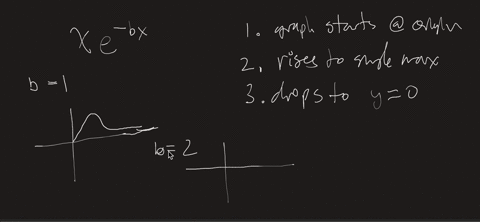 xe^{-bx}
b=1
b=2
1. graph starts @ origin
2. rises to single max
3. drops to y=0